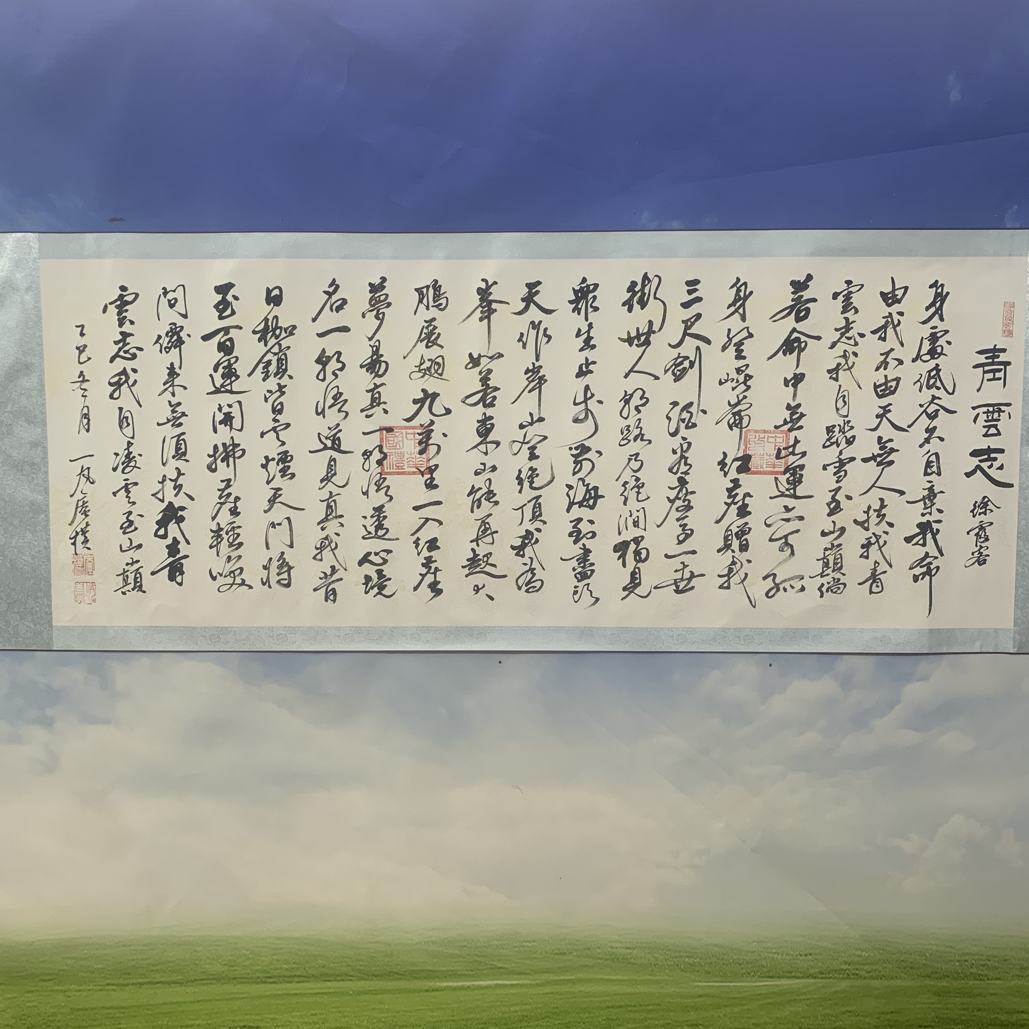 青雲志
徐霞客
身處低谷不自棄我命
由我不由天無人扶我青
雲志我自踏雪至山巔倘
若命中無此運亦可孤
身登崑崙紅塵贈我
三尺劍酒 一世
街世人朝路乃繞澗獨見
眾生止步前海到盡頭
天作岸山登絕頂我為
峯如若東山能再起大
鵬展翅九萬里一入紅塵
夢易真一朝悟道心境
名一朝悟道見真我昔
日枷鎖皆雲煙天門將
至百運開拂塵輕喚
問僊來無須扶我青
雲志我自凌雲至山巔
乙巳冬月 一凡